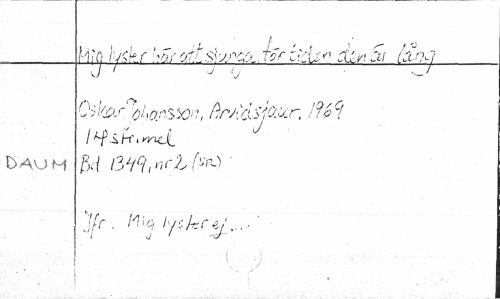 Mig lyster här att sjunga, för tiden den är lång
Oskar Johansson, Arvidsjaur, 1969
14 str. mel
DAUM Bd 1349, nr 2 (SR)
Jfr. Mig lyster ej...